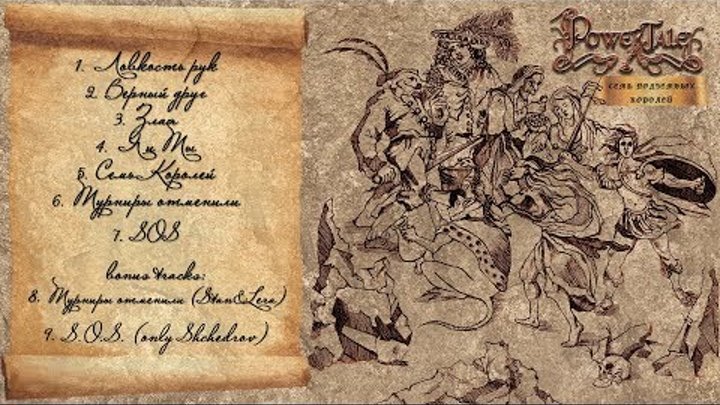 1. Ловкость рук
2. Верный друг
3. Злат
4. Я и Ты
5. Семь Королей
6. Турниры отменили
7. SOS
bonus tracks:
8. Турниры отменили (Stan&Lera)
9. S.O.S. (only Shchedrov)
Power Tale
семь подземных
королей